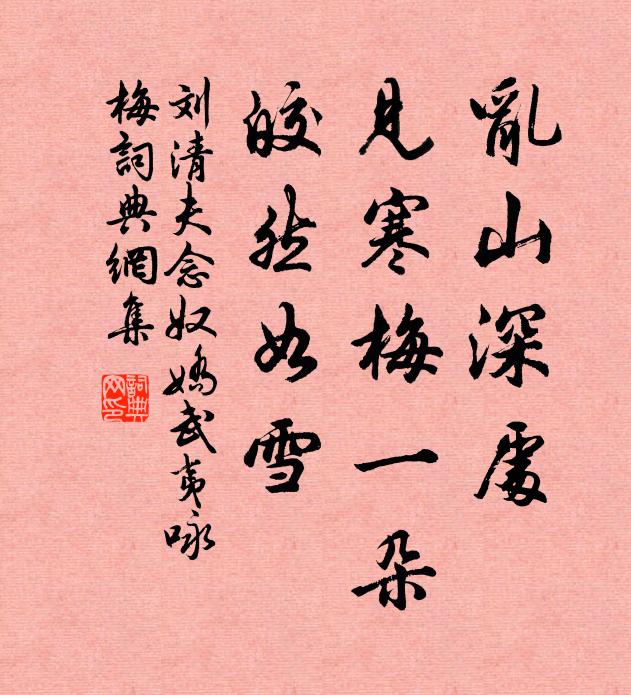 亂山深處
見寒梅一朵
皎然如雪
刘清夫念奴嬌武夷咏
梅詞典網集
詞典
网印